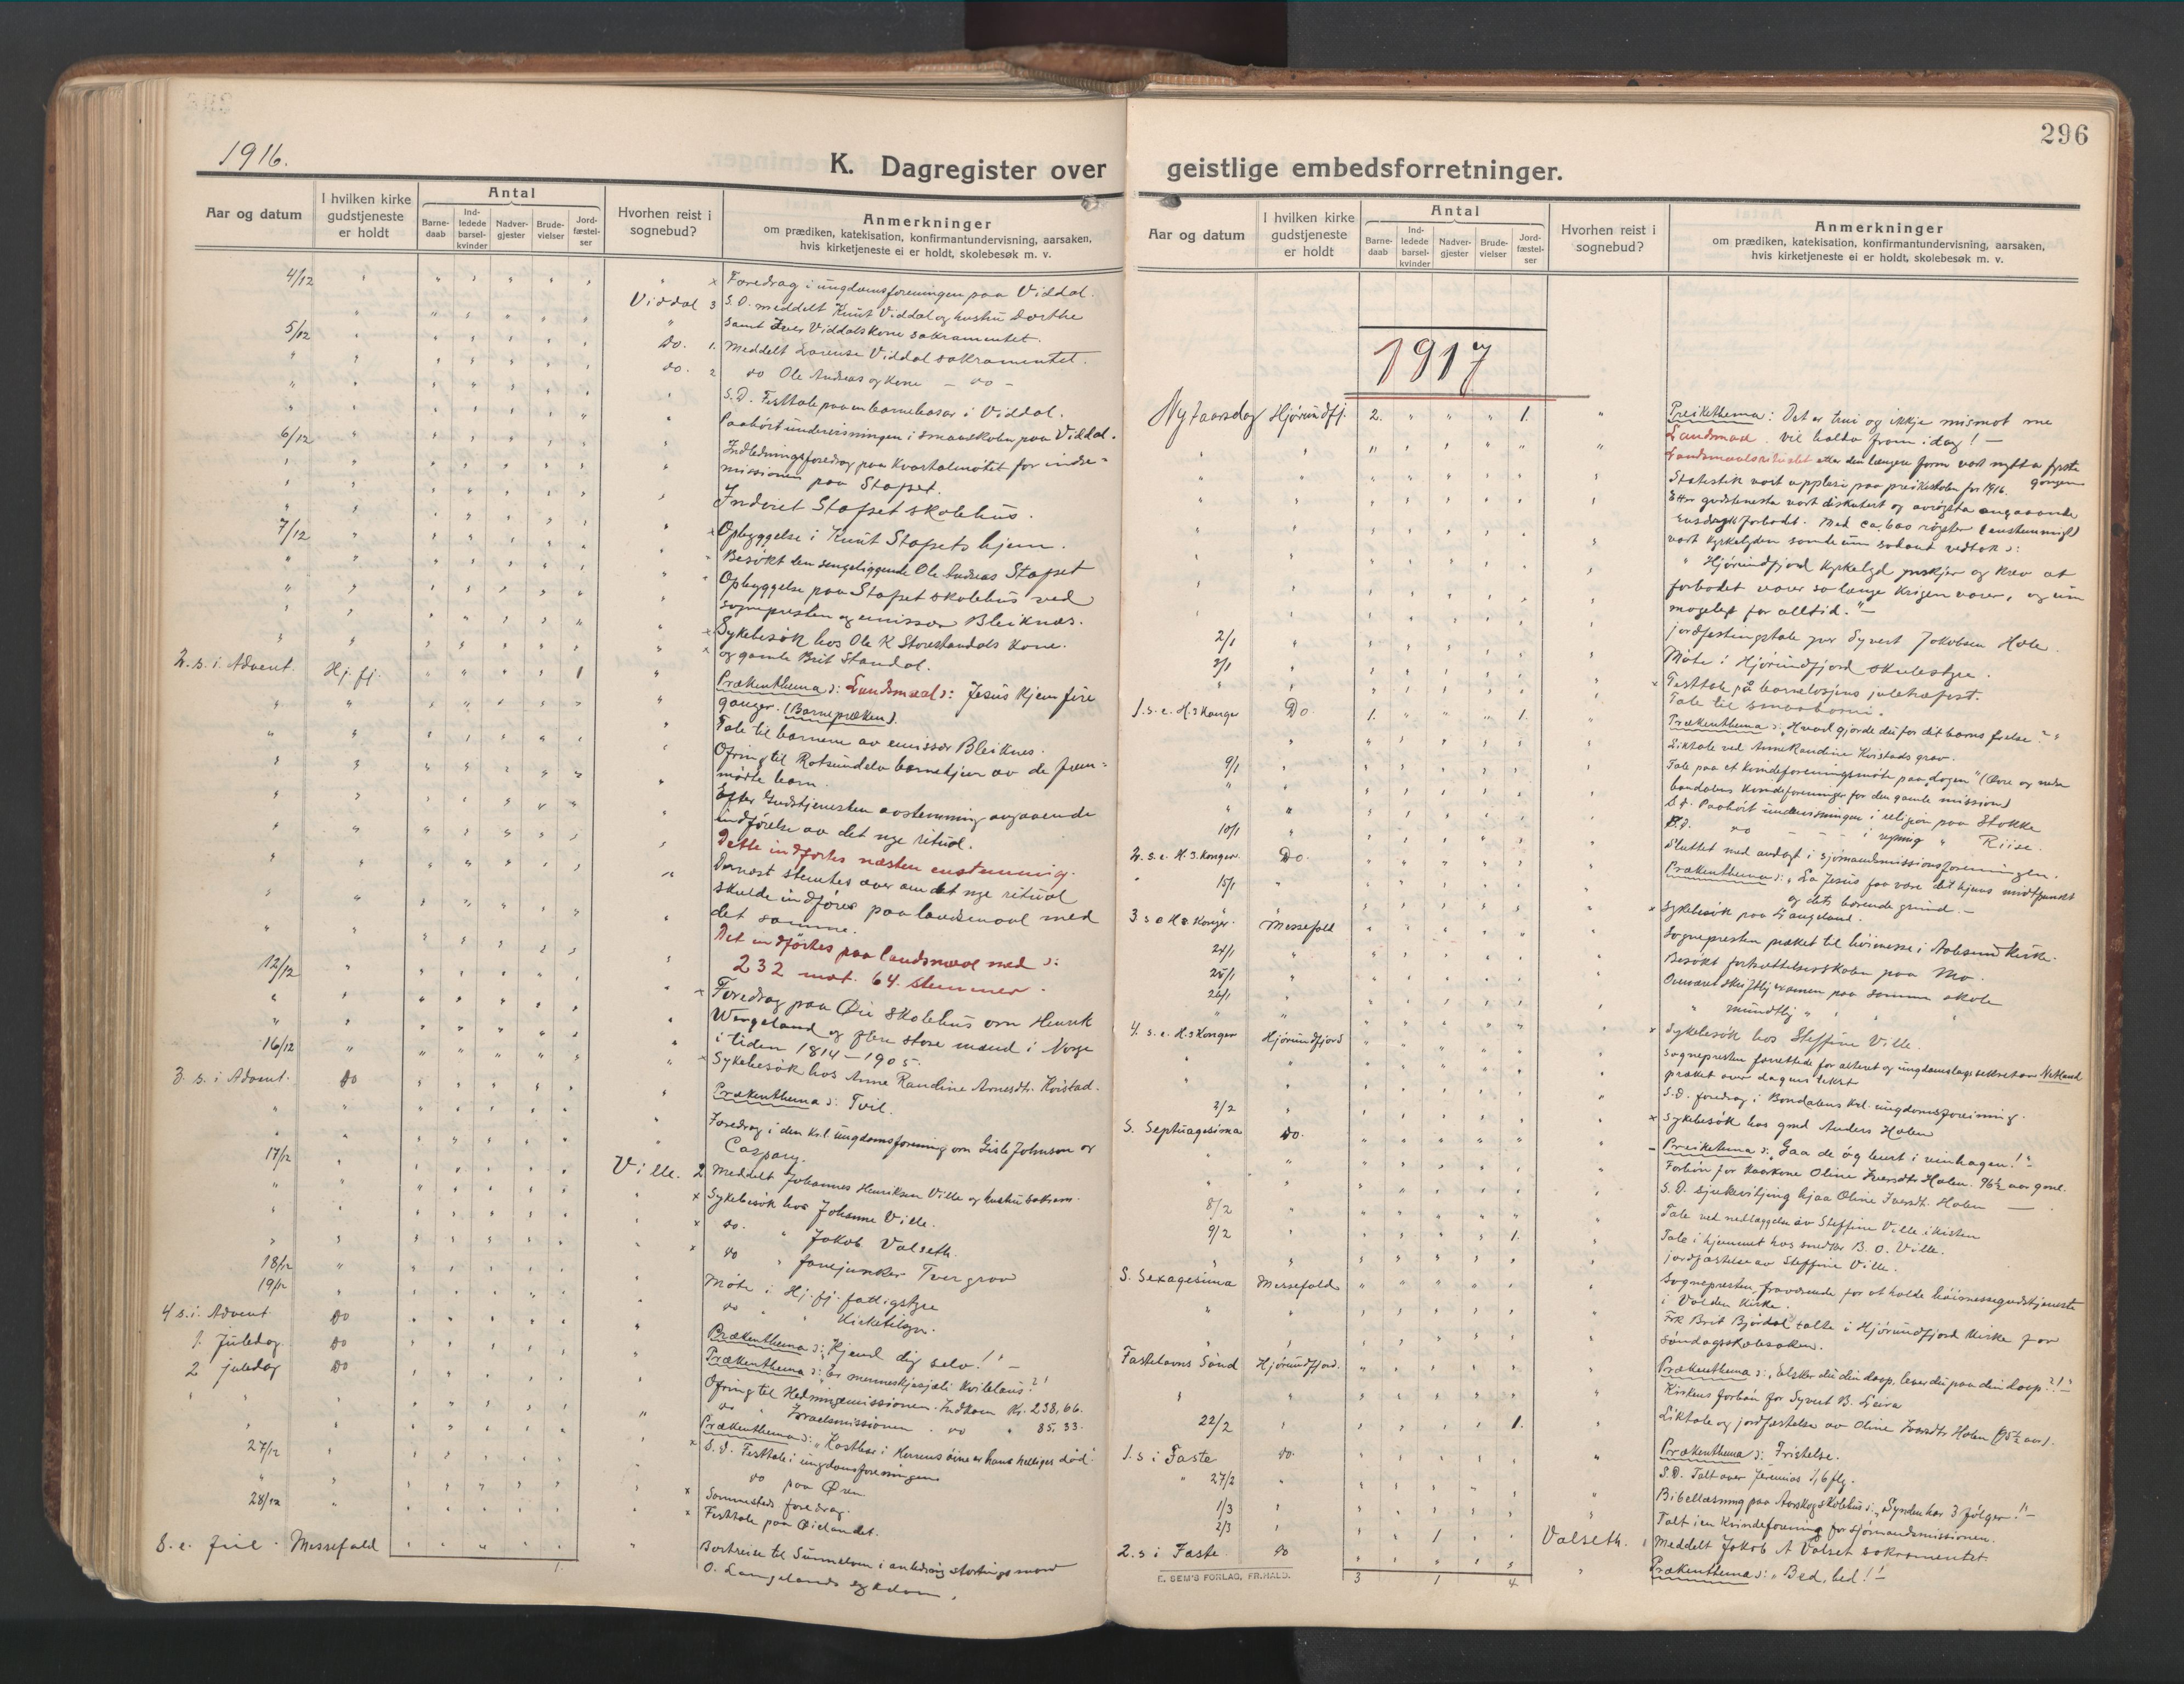 1916.
K. Dagregister over
Aar og datum
I hvilken kirke gudstjeneste er holdt
Antal
Barne-daab
Ind-ledede barsel-kvinder
Nadver-gjester
Brude-vielser
Jord-fæstel-ser
Hvorhen reist i sognebud?
Anmerkninger
om prædiken, katekisation, konfirmantundervisning, aarsaken,
hvis kirketjeneste ei er holdt, skolebesøk m. v.
4/12 x Foredrag i ungdomsforeningen paa Viddal.
Viddal 3 S.D. meddelt Knut Viddal og hustru Dorthe
samt Iver Viddals kone sakramentet.
5/12 Do. 1. Meddelt Lovise Viddal sakramentet.
do. 2 do Ole Andreas og kone – do –
S.D. Festtale paa en barnebasar i Viddal.
6/12 Paahört undervisningen i smaaskolen paa Viddal.
Indledningsforedrag paa Kvartalmötet for indre-
missionen paa Stafset.
Inviet Stafset skolehus.
7/12 x Opbyggelse i Knut Stafsets hjem.
Besökt den sengeliggende Ole Andreas Stafset
Opbyggelse paa Stafset skolehus ved
sognepresten og emissær Bleiknæs.
x Sykebesök hos Ole K Storestandals kone.
x og gamle Brit Standal.
2. s. i Advent. Hj. fj. 1 Prækenthema ɔ: Landsmaal ɔ: Jesus kjem fire
ganger. (Barnepræken).
Tale til barnene av emissær Bleiknes.
Ofring til Rotsundelv barnehjem av de frem-
mötte barn.
Efter Gudstjenesten avstemning angaaende
indförelse av det nye ritual.
Dette indförtes næsten enstemmig.
Dernæst stemtes over om det nye ritual
skulde indföres paa landsmaal med
det samme.
Det indförtes paa landsmaal med ɔ:
232 mot 64 stemmer.
12/12 x Foredrag paa Øie skolehus om Henrik
Wergeland og flere store mænd i Norge
i tiden 1814–1905.
16/12 x Sykebesök hos Anne Randine Arnesdtr. Kvistad.
3. s. i Advent. do Prækenthema ɔ: Tvil.
Foredrag i den Krl. ungdomsforening om Gisle Johnson og
Caspary.
17/12 Ville. 2 Meddelt Johannes Henriksen Ville og hustru sakram.
x Sykebesök hos Johanne Ville.
x do. " Jakob Valseth.
x do " fanejunker Tvergrov
18/12 Möte i Hj. fj. fattigstyre
19/12 do " Kirketilsyn.
4 s. i. Advent do Prækenthema ɔ: "Kjend dig selv!" –
1. Juledag do Prækenthema ɔ: "Er menneskjesjæli kvilelaus?"
2 juledag do Ofring til Hedningemissionen. Indkom Kr. 238,66.
do " Israelsmissionen . do " 85,33.
Prækenthema ɔ: "Kostbar i Herrens öine er hans helliges död"
27/12 x S. D. Festtale i ungdomsforeningen
do paa Øren
28/12 x Sammesteds foredrag.
x Festtale paa Øielandet.
S. e. Jul. Messefald Bortreise til Sunnelven i anledning stortingsmand
1. O. Langelands sykdom.
296
geistlige embedsforretninger.
Aar og datum
I hvilken kirke gudstjeneste er holdt
Antal
Barne-daab
Ind-ledede barsel-kvinder
Nadver-gjester
Brude-vielser
Jord-fæstel-ser
Hvorhen reist i sognebud?
Anmerkninger
om prædiken, katekisation, konfirmantundervisning, aarsaken,
hvis kirketjeneste ei er holdt, skolebesøk m. v.
1917
Nytaarsdag Hjörundfj. 2. 1. Preikethema: Det er trui og ikkje mismot me
Landsmaal. vil halda fram idag! –
Landsmaalsritualet etter den lengere form vart nytta fyrste
gongen
Statistik vart upplesi paa preikestolen for 1916.
Etter gudstenesta vart diskutert og avrøysta angaaande
rusdrykforbodet. Med ca. 600 røyster (einstemmigt)
vart kyrkelyden samde um sodant vedtak ɔ:
"Hjörundfjord kyrkelyd ynskjer og krev at
forbodet varer so lenge krigen varer, og um
mogelegt for alltid." –
jordfestingstale yver Syvert Jokobsen Hole.
2/1 Möte i Hjörundfjord skulestyre.
3/1 x Festtale på barnelosjens juletræfest.
Tale til smaaborni.
1. s. e. H. 3 Konger Do. 1. 1. Prækenthema ɔ: "Hvad gjorde du for dit barns frelse?"
Liktale ved Anne Randine Kvistads grav.
9/1 Tale paa et kvindeforeningsmöte paa "dagen" (Övre og nedre
bondalens kvindeforeninger for den gamle mission)
S. D. Paahört undervisningen i religion paa Stokke
10/1 S.D. do – – – i regning " Riise.
Sluttet med andagt i sjömandsmissionsforeningen.
2. s. e. H. 3. Konger. Do. Prækenthema ɔ: "La Jesus faa være dit hjems midtpunkt
og dets bærende grund. –
15/1 x Sykebesök paa Langeland.
3 s e H 3 Konger. Messefald Sognepresten præket til höimesse i Aalesund kirke.
24/1 Besökt fortsættelsesskolen paa Mo.
25/1 Overværet skriftlig examen paa samme skole
26/1 " mundtlig " " "
x Sykebesök hos Steffine Ville.
4. s. e. H. 3 Konger Hjörundfjord Sognepresten forrettede for alteret og ungdomslagssekretær Netland
præket over dagens tekst
S. D. foredrag i Bondalens krl. ungdomsforening.
2/2 x Sykebesök hos gmd Anders Holen
S. Septuagesima do. Preikethema ɔ: "Gaa de òg burt i vinhagen!" –
Forbön for kaarkone Oline Iversdtr Holen. 96½ aar gml.
S. D. sjukevitjing hjaa Oline Iversdt. Holen –
8/2 Tale ved nedlæggelse av Steffine Ville i kisten
9/2 1. Tale i hjemmet hos smedbr B. O. Ville.
jordfæstelse av Steffine Ville.
S. Sexagesima Messefald Sognepresten fraværende for at holde höimessegudstjeneste
i Volden kirke.
Frk Brit Bjørdal talte i Hjörundfjord kirke for
söndagsskolesaken.
Fastelavns Sönd Hjörundfjord. Prækenthema ɔ: "Elsker du din daap, lever du paa din daap?!" –
Kirkens forbön for Syvert B. Leira
22/2 1. Liktale og jordfæstelse av Oline Iversdtr Holen (95½ aar).
1. s i Faste do. Prækenthema ɔ: Fristelse.
27/2 S. D. Talt over Jeremias 1,6 flg.
1/3 Bibellæsning paa Aarskog skolehus ɔ: "Synden har 3 fölger!" –
2/3 Talt i en kvindeforening for sjömandsmissionen.
1 Valseth. 1 Meddelt Jakob A Valset sakramentet.
2. s i Faste do Prækenthema ɔ: "Bed, bed!" –
E. SEM'S FORLAG, FR.HALD.
3 1 4